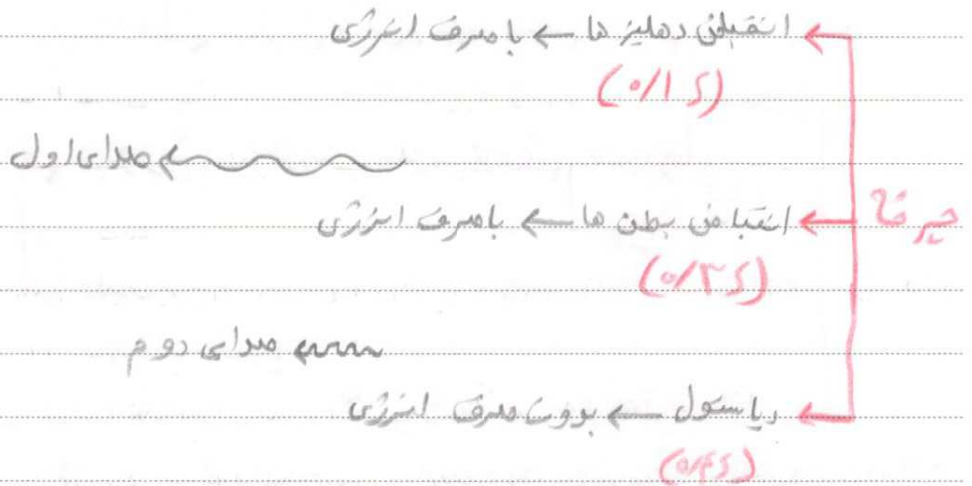 انقباض دهلیز ها ← با صرف انرژی
(۰/۱ s)
صدای اول
چرخه
انقباض بطن ها ← با صرف انرژی
(۰/۳ s)
صدای دوم
دیاستول ← بدون صرف انرژی
(۰/۴ s)